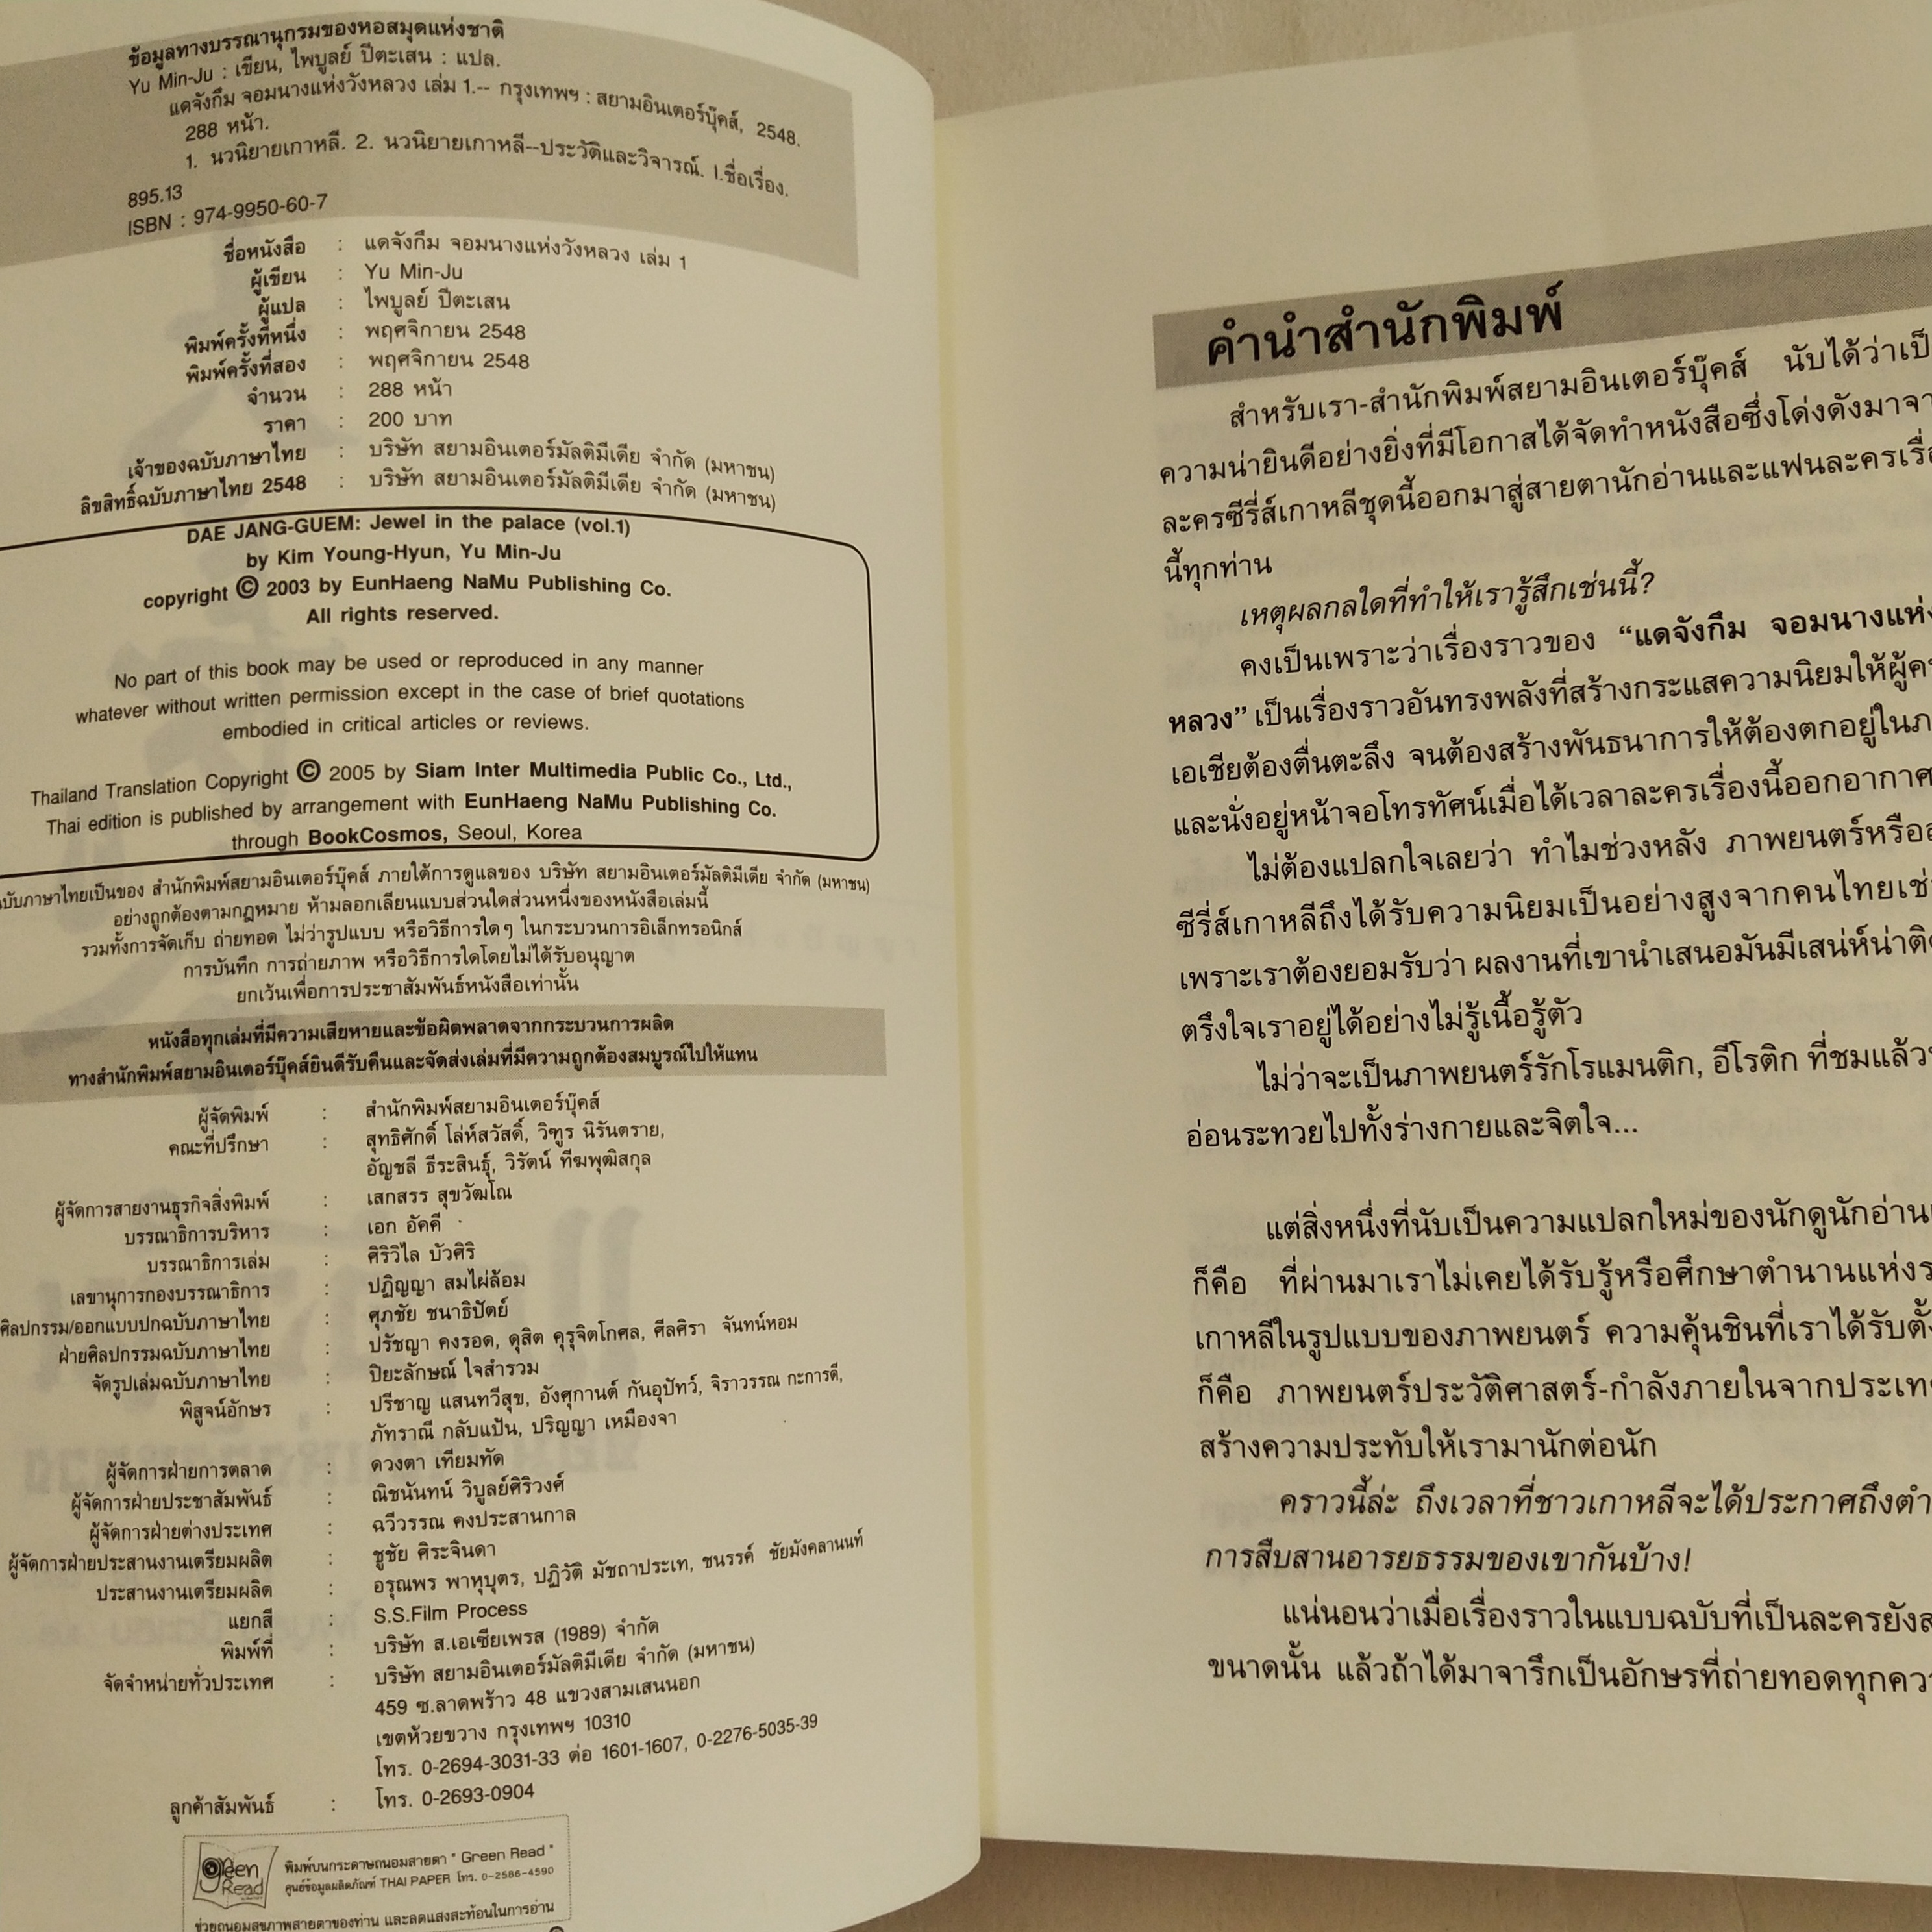 ข้อมูลทางบรรณานุกรมของหอสมุดแห่งชาติ
Yu Min-Ju : เขียน, ไพบูลย์ ปีตะเสน : แปล.
แดจังกึม จอมนางแห่งวังหลวง เล่ม 1.-- กรุงเทพฯ : สยามอินเตอร์บุ๊คส์, 2548.
288 หน้า.
1. นวนิยายเกาหลี. 2. นวนิยายเกาหลี--ประวัติและวิจารณ์. I.ชื่อเรื่อง.
895.13
ISBN : 974-9950-60-7
ชื่อหนังสือ : แดจังกึม จอมนางแห่งวังหลวง เล่ม 1
ผู้เขียน : Yu Min-Ju
ผู้แปล : ไพบูลย์ ปีตะเสน
พิมพ์ครั้งที่หนึ่ง : พฤศจิกายน 2548
พิมพ์ครั้งที่สอง : พฤศจิกายน 2548
จำนวน : 288 หน้า
ราคา : 200 บาท
เจ้าของฉบับภาษาไทย : บริษัท สยามอินเตอร์มัลติมีเดีย จำกัด (มหาชน)
ลิขสิทธิ์ฉบับภาษาไทย 2548 : บริษัท สยามอินเตอร์มัลติมีเดีย จำกัด (มหาชน)
DAE JANG-GUEM: Jewel in the palace (vol.1)
by Kim Young-Hyun, Yu Min-Ju
copyright © 2003 by EunHaeng NaMu Publishing Co.
All rights reserved.
No part of this book may be used or reproduced in any manner
whatever without written permission except in the case of brief quotations
embodied in critical articles or reviews.
Thailand Translation Copyright © 2005 by Siam Inter Multimedia Public Co., Ltd.,
Thai edition is published by arrangement with EunHaeng NaMu Publishing Co.
through BookCosmos, Seoul, Korea
ฉบับภาษาไทยเป็นของ สำนักพิมพ์สยามอินเตอร์บุ๊คส์ ภายใต้การดูแลของ บริษัท สยามอินเตอร์มัลติมีเดีย จำกัด (มหาชน)
อย่างถูกต้องตามกฎหมาย ห้ามลอกเลียนแบบส่วนใดส่วนหนึ่งของหนังสือเล่มนี้
รวมทั้งการจัดเก็บ ถ่ายทอด ไม่ว่ารูปแบบ หรือวิธีการใดๆ ในกระบวนการอิเล็กทรอนิกส์
การบันทึก การถ่ายภาพ หรือวิธีการใดโดยไม่ได้รับอนุญาต
ยกเว้นเพื่อการประชาสัมพันธ์หนังสือเท่านั้น
หนังสือทุกเล่มที่มีความเสียหายและข้อผิดพลาดจากกระบวนการผลิต
ทางสำนักพิมพ์สยามอินเตอร์บุ๊คส์ยินดีรับคืนและจัดส่งเล่มที่มีความถูกต้องสมบูรณ์ไปให้แทน
ผู้จัดพิมพ์ : สำนักพิมพ์สยามอินเตอร์บุ๊คส์
คณะที่ปรึกษา : สุทธิศักดิ์ โล่ห์สวัสดิ์, วิฑูร นิรันตราย,
อัญชลี ธีระสินธุ์, วิรัตน์ ทีฆพุฒิสกุล
ผู้จัดการสายงานธุรกิจสิ่งพิมพ์ : เสกสรร สุขวัฒโณ
บรรณาธิการบริหาร : เอก อัคคี
บรรณาธิการเล่ม : ศิริวิไล บัวศิริ
เลขานุการกองบรรณาธิการ : ปฏิญญา สมไผ่ล้อม
ศิลปกรรม/ออกแบบปกฉบับภาษาไทย : ศุภชัย ชนาธิปัตย์
ฝ่ายศิลปกรรมฉบับภาษาไทย : ปรัชญา คงรอด, ดุสิต คุรุจิตโกศล, ศีลศิรา จันทน์หอม
จัดรูปเล่มฉบับภาษาไทย : ปิยะลักษณ์ ใจสำรวม
พิสูจน์อักษร : ปรีชาญ แสนทวีสุข, อังศุกานต์ กันอุปัทว์, จิราวรรณ กะการดี,
ภัทราณี กลับแป้น, ปริญญา เหมืองจา
ผู้จัดการฝ่ายการตลาด : ดวงตา เทียมทัด
ผู้จัดการฝ่ายประชาสัมพันธ์ : ณิชนันทน์ วิบูลย์ศิริวงศ์
ผู้จัดการฝ่ายต่างประเทศ : ฉวีวรรณ คงประสานกาล
ผู้จัดการฝ่ายประสานงานเตรียมผลิต : ชูชัย ศิระจินดา
ประสานงานเตรียมผลิต : อรุณพร พาหุบุตร, ปฏิวัติ มัชถาประเท, ชนรรค์ ชัยมังคลานนท์
แยกสี : S.S.Film Process
พิมพ์ที่ : บริษัท ส.เอเซียเพรส (1989) จำกัด
จัดจำหน่ายทั่วประเทศ : บริษัท สยามอินเตอร์มัลติมีเดีย จำกัด (มหาชน)
459 ซ.ลาดพร้าว 48 แขวงสามเสนนอก
เขตห้วยขวาง กรุงเทพฯ 10310
โทร. 0-2694-3031-33 ต่อ 1601-1607, 0-2276-5035-39
ลูกค้าสัมพันธ์ : โทร. 0-2693-0904
green Read
พิมพ์บนกระดาษถนอมสายตา " Green Read "
ศูนย์ข้อมูลผลิตภัณฑ์ THAI PAPER โทร. 0-2586-4590
ช่วยถนอมสุขภาพสายตาของท่าน และลดแสงสะท้อนในการอ่าน
คำนำสำนักพิมพ์
สำหรับเรา-สำนักพิมพ์สยามอินเตอร์บุ๊คส์ นับได้ว่าเป็
ความน่ายินดีอย่างยิ่งที่มีโอกาสได้จัดทำหนังสือซึ่งโด่งดังมาจา
ละครซีรี่ส์เกาหลีชุดนี้ออกมาสู่สายตานักอ่านและแฟนละครเรื่
นี้ทุกท่าน
เหตุผลกลใดที่ทำให้เรารู้สึกเช่นนี้?
คงเป็นเพราะว่าเรื่องราวของ “แดจังกึม จอมนางแห่ง
หลวง” เป็นเรื่องราวอันทรงพลังที่สร้างกระแสความนิยมให้ผู้ค
เอเชียต้องตื่นตะลึง จนต้องสร้างพันธนาการให้ต้องตกอยู่ในภ
และนั่งอยู่หน้าจอโทรทัศน์เมื่อได้เวลาละครเรื่องนี้ออกอากาศ
ไม่ต้องแปลกใจเลยว่า ทำไมช่วงหลัง ภาพยนตร์หรือ
ซีรี่ส์เกาหลีถึงได้รับความนิยมเป็นอย่างสูงจากคนไทยเช่
เพราะเราต้องยอมรับว่า ผลงานที่เขานำเสนอมันมีเสน่ห์น่าติ
ตรึงใจเราอยู่ได้อย่างไม่รู้เนื้อรู้ตัว
ไม่ว่าจะเป็นภาพยนตร์รักโรแมนติก, อีโรติก ที่ชมแล้ว
อ่อนระทวยไปทั้งร่างกายและจิตใจ...
แต่สิ่งหนึ่งที่นับเป็นความแปลกใหม่ของนักดูนักอ่าน
ก็คือ ที่ผ่านมาเราไม่เคยได้รับรู้หรือศึกษาตำนานแห่งร
เกาหลีในรูปแบบของภาพยนตร์ ความคุ้นชินที่เราได้รับตั้
ก็คือ ภาพยนตร์ประวัติศาสตร์-กำลังภายในจากประเท
สร้างความประทับให้เรามานักต่อนัก
คราวนี้ล่ะ ถึงเวลาที่ชาวเกาหลีจะได้ประกาศถึงตำ
การสืบสานอารยธรรมของเขากันบ้าง!
แน่นอนว่าเมื่อเรื่องราวในแบบฉบับที่เป็นละครยังส
ขนาดนั้น แล้วถ้าได้มาจารึกเป็นอักษรที่ถ่ายทอดทุกคว